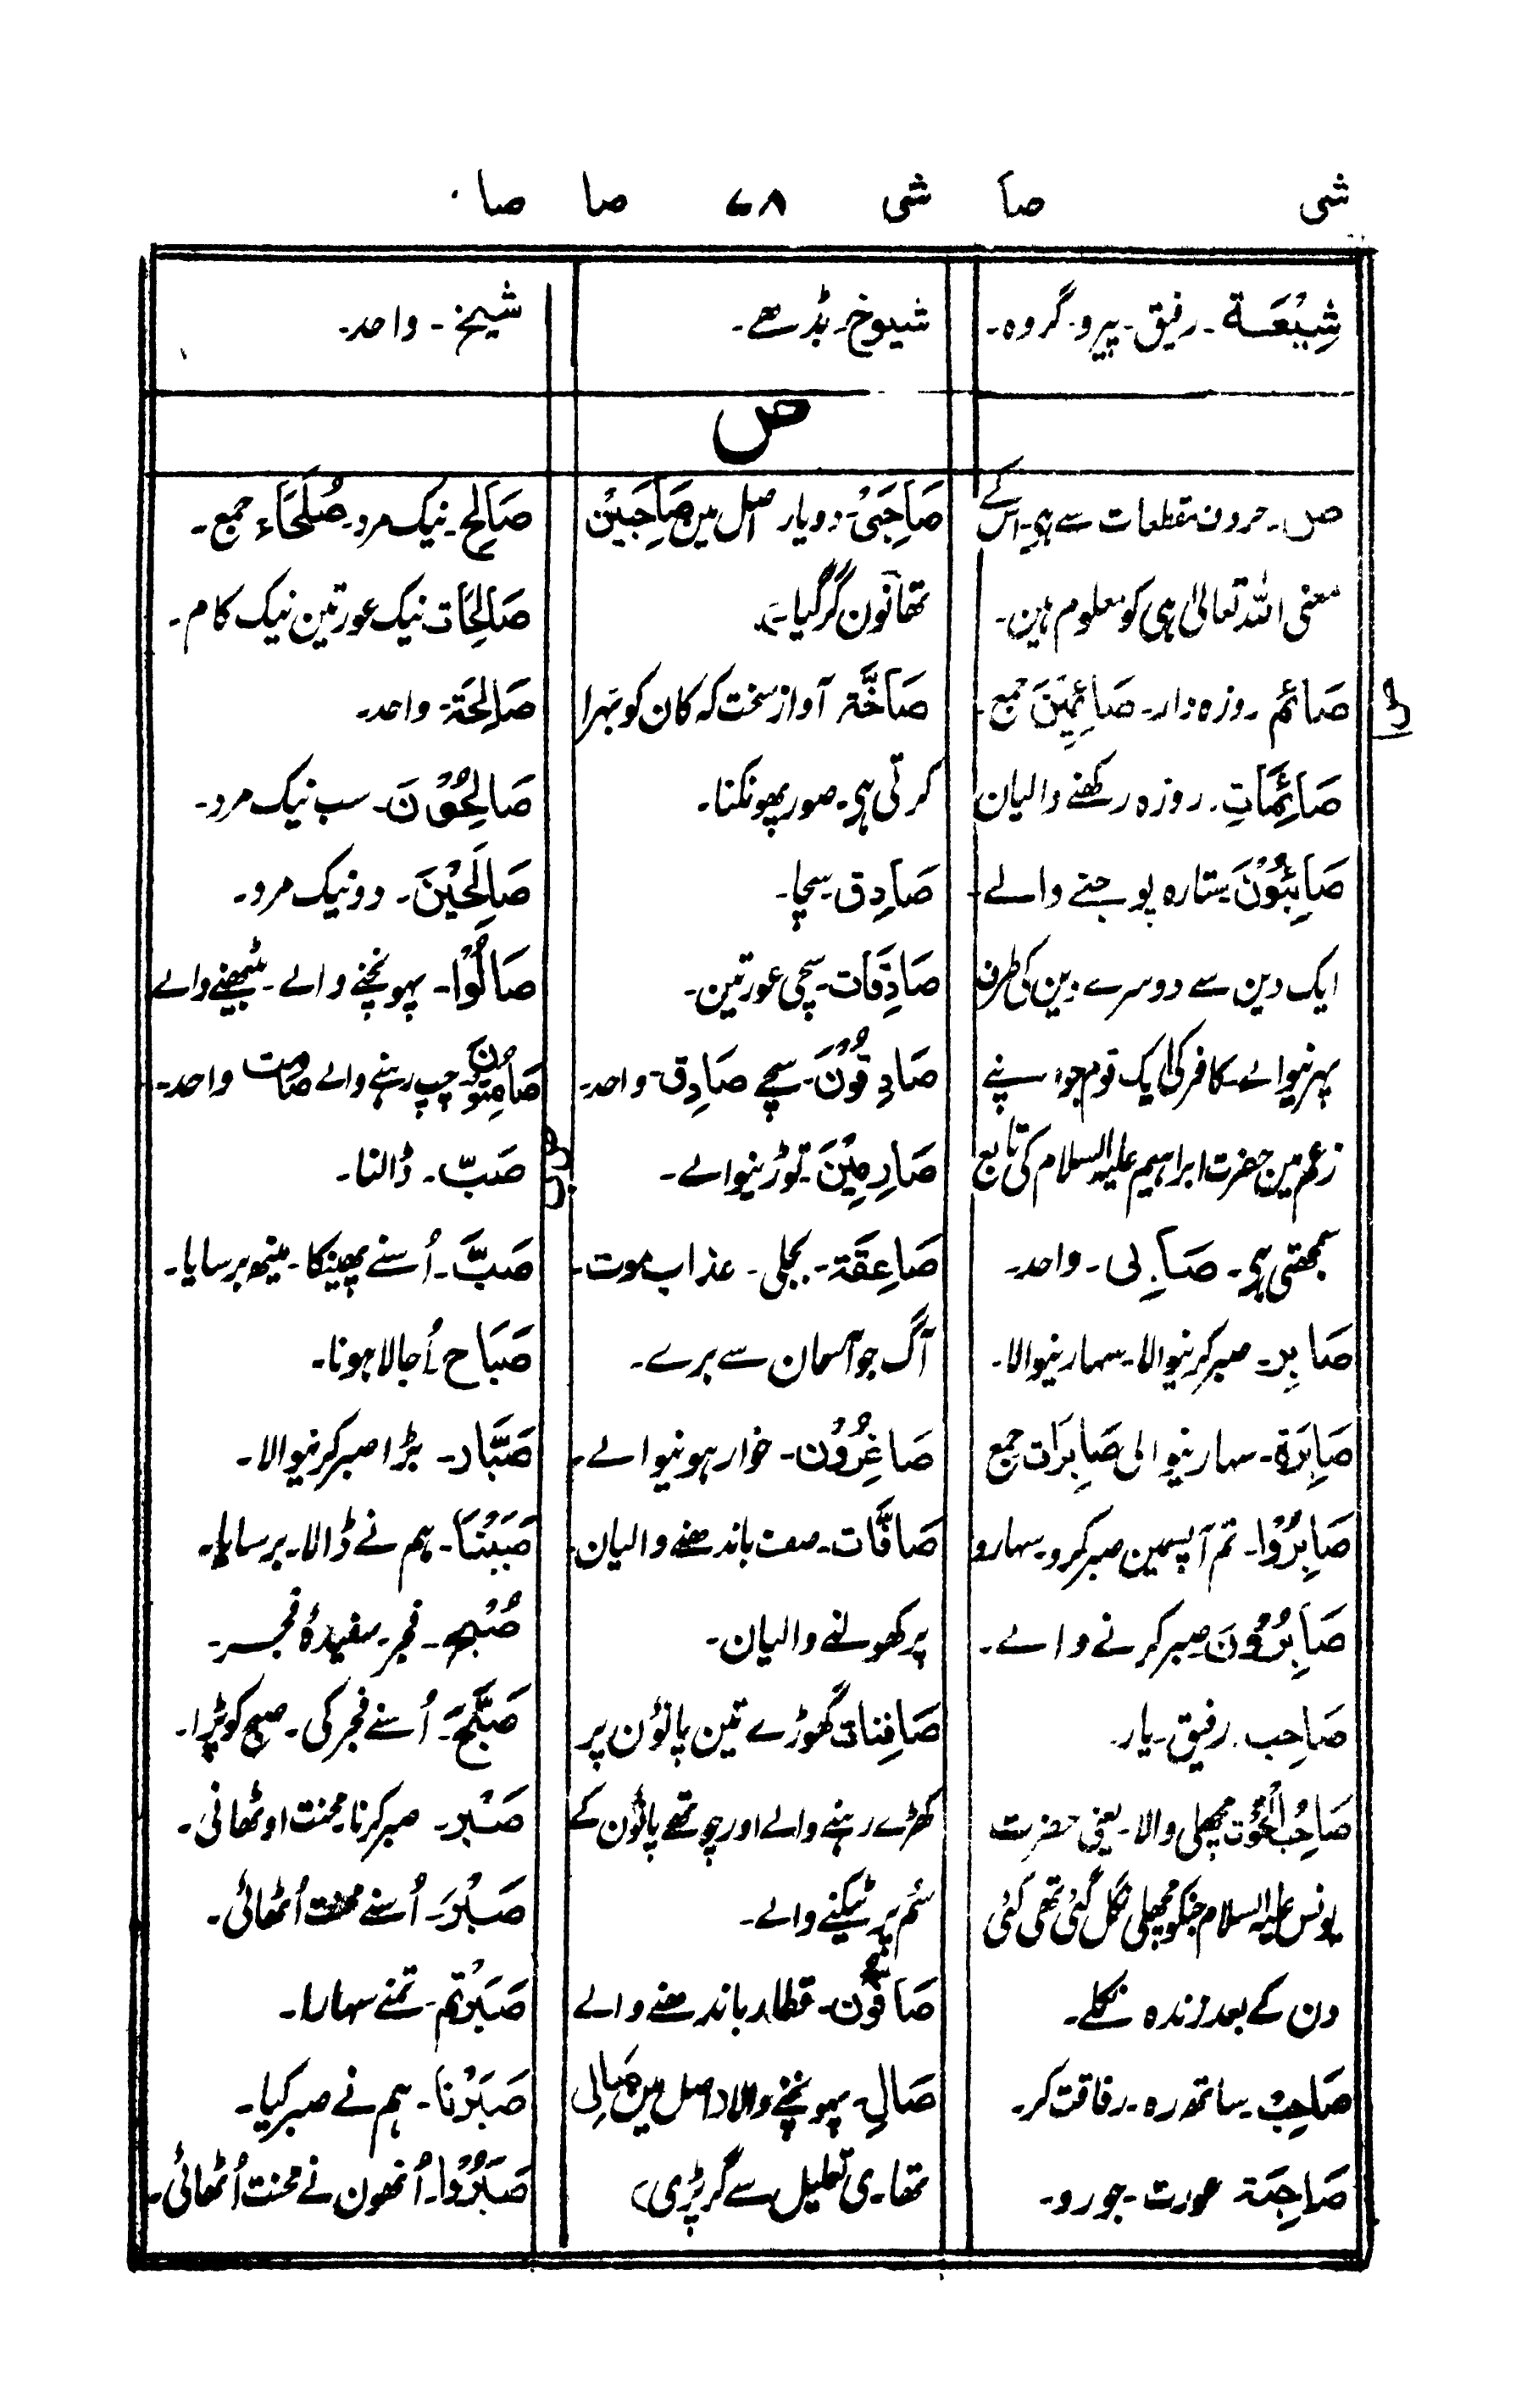 شی صا شی ۶۸ صا صا
شِیْعَۃ۔ رفیق۔ پیرو۔ گروہ۔
شیوخ۔ بڈھے۔
شیخ۔ واحد۔
ص
ص۔ حروف مقطعات سے ہی۔ اس کے
معنی اللہ تعالیٰ ہی کو معلوم ہین۔
صَائم روزہ دار۔ صَائِمِیْنَ جمع۔
صَائِمَاتِ۔ روزہ رکھنے والیان
صَابِئُوْنَ ستارہ پوجنے والے۔
ایک دین سے دوسرے دین کی طرف
پہرنیوالے۔ کافر کی ایک قوم جو اپنے
زعم مین حضرت ابراہیم علیہ السلام کی تابع
سمجھتی ہی۔ صَابِی۔ واحد۔
صَابِر۔ صبر کرنیوالا۔ سہارنیوالا۔
صَابِرَۃ۔ سہارنیوالی صَابِرَات جمع
صَابِرُوْا۔ تم آپسمین صبر کرو۔ سہارو
صَابِرُوْنَ صبر کرنے والے۔
صَاحِب۔ رفیق۔ یار۔
صَاحِبُ الْحُوْت مچھلی والا۔ یعنی حضرت
یونس علیہ السلام جنکو مچھلی نگل گئی تھی کئی
دن کے بعد زندہ نکلے۔
صَاحِبْ۔ ساتھ رہ۔ رفاقت کر۔
صَاحِبَۃ عورت۔ جورو۔
صَاحِبَیْ۔ دو یار اصل مین صَاحِبَیْن
تھا نون گر گیا۔
صَاخَّۃ آواز سخت کہ کان کو بہرا
کرتی ہی۔ صور پھونکنا۔
صَادِق۔ سچا۔
صَادِقَات۔ سچی عورتین۔
صَادِقُوْنَ۔ سچے صَادِق۔ واحد۔
صَارِمِیْنَ۔ توڑنیوالے۔
صَاعِقَۃ۔ بجلی۔ عذاب موت۔
آگ جو آسمان سے برے۔
صَاغِرُوْن۔ خوار ہونیوالے۔
صَافَّات۔ صف باندھنے والیان۔
پر کھولنے والیان۔
صَافِنَات گھوڑے تین پانؤن پر
کھڑے رہنے والے اور چوتھے پانؤن کے
سُم پر ٹیکنے والے۔
صَافُّوْن۔ قطار باندھنے والے
صَالِ۔ پہونچنے والا (اصل مین صَالِی
تھا۔ ی تعلیل سے گر پڑی)
صَالِح۔ نیک مرد۔ صُلَحَاء جمع۔
صَالِحَات نیک عورتین نیک کام۔
صَالِحَۃ۔ واحد۔
صَالِحُوْنَ۔ سب نیک مرد۔
صَالِحَیْنَ۔ دو نیک مرد۔
صَالُوْا۔ پہونچنے والے۔ بیٹھنے والے
صَامِتُوْن۔ چپ رہنے والے صامت واحد۔
صَبّ۔ ڈالنا۔
صَبَّ۔ اُسنے پھینکا۔ مینھ برسایا۔
صَبَاح اُجالا ہونا۔
صَبَّار۔ بڑا صبر کرنیوالا۔
صَبَبْنَا۔ ہم نے ڈالا۔ برسایا۔
صُبْح۔ فجر۔ سفیدۂ فجر۔
صَبَّحَ۔ اُسنے فجر کی۔ صبح کو پڑا۔
صَبْر۔ صبر کرنا۔ محنت اوٹھانی۔
صَبَرَ۔ اُسنے محنت اُٹھائی۔
صَبَرْتُم۔ تمنے سہارا۔
صَبَرْنَا۔ ہم نے صبر کیا۔
صَبَرُوْا۔ اُنھون نے محنت اُٹھائی۔